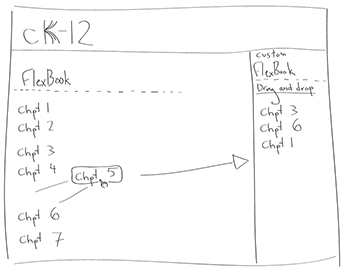 cK-12
FlexBook
Chpt 1
Chpt 2
Chpt 3
Chpt 4
Chpt 5
Chpt 6
Chpt 7
custom
FlexBook
Drag and drop
Chpt 3
Chpt 6
Chpt 1